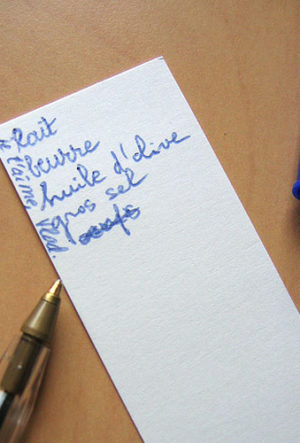 lait
beurre
huile d'olive
gros sel
oeufs
je t'aime